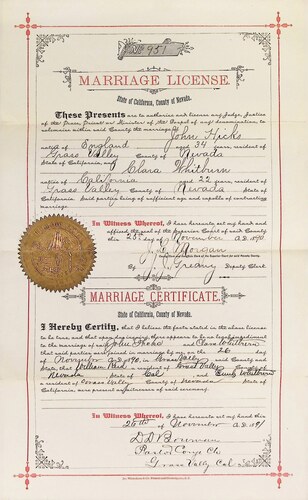 No 951
MARRIAGE LICENSE.
State of California, County of Nevada.
These Presents are to authorize and license any Judge, Justice
of the Peace, Priest or Minister of the Gospel of any denomination, to
solemnize within said County the marriage of John Hicks
native of England aged 34 years, resident of
Grass Valley County of Nevada
State of California, and Clara Whitburn
native of California aged 22 years, resident of
Grass Valley, County of Nevada State of
California. Said parties being of sufficient age and capable of contracting
marriage.
In Witness Whereof, I have hereunto set my hand and
affixed the seal of the Superior Court of said County, this
25 day of November A.D. 1890
Morgan
Deputy Clerk
MARRIAGE CERTIFICATE.
State of California, County of Nevada.
I Hereby Certify, that I believe the facts stated in the above license
to be true, and that upon due inquiry, there appears to be no legal impediment
to the marriage of said John Hicks and Clara Whitburn
that said parties were joined in marriage by me, on the 26 day
of November A.D. 1890, in Grass Valley County and
State; that William a resident of Grass Valley County of
Nevada State of Cal and Whitburn
a resident of Grass Valley County of State of
Cal, were present as witnesses of said ceremony.
In Witness Whereof, I have hereunto set my hand this
26th November A.D. 189
D D Bowman
Pastor Cong Ch
Grass Valley Cal